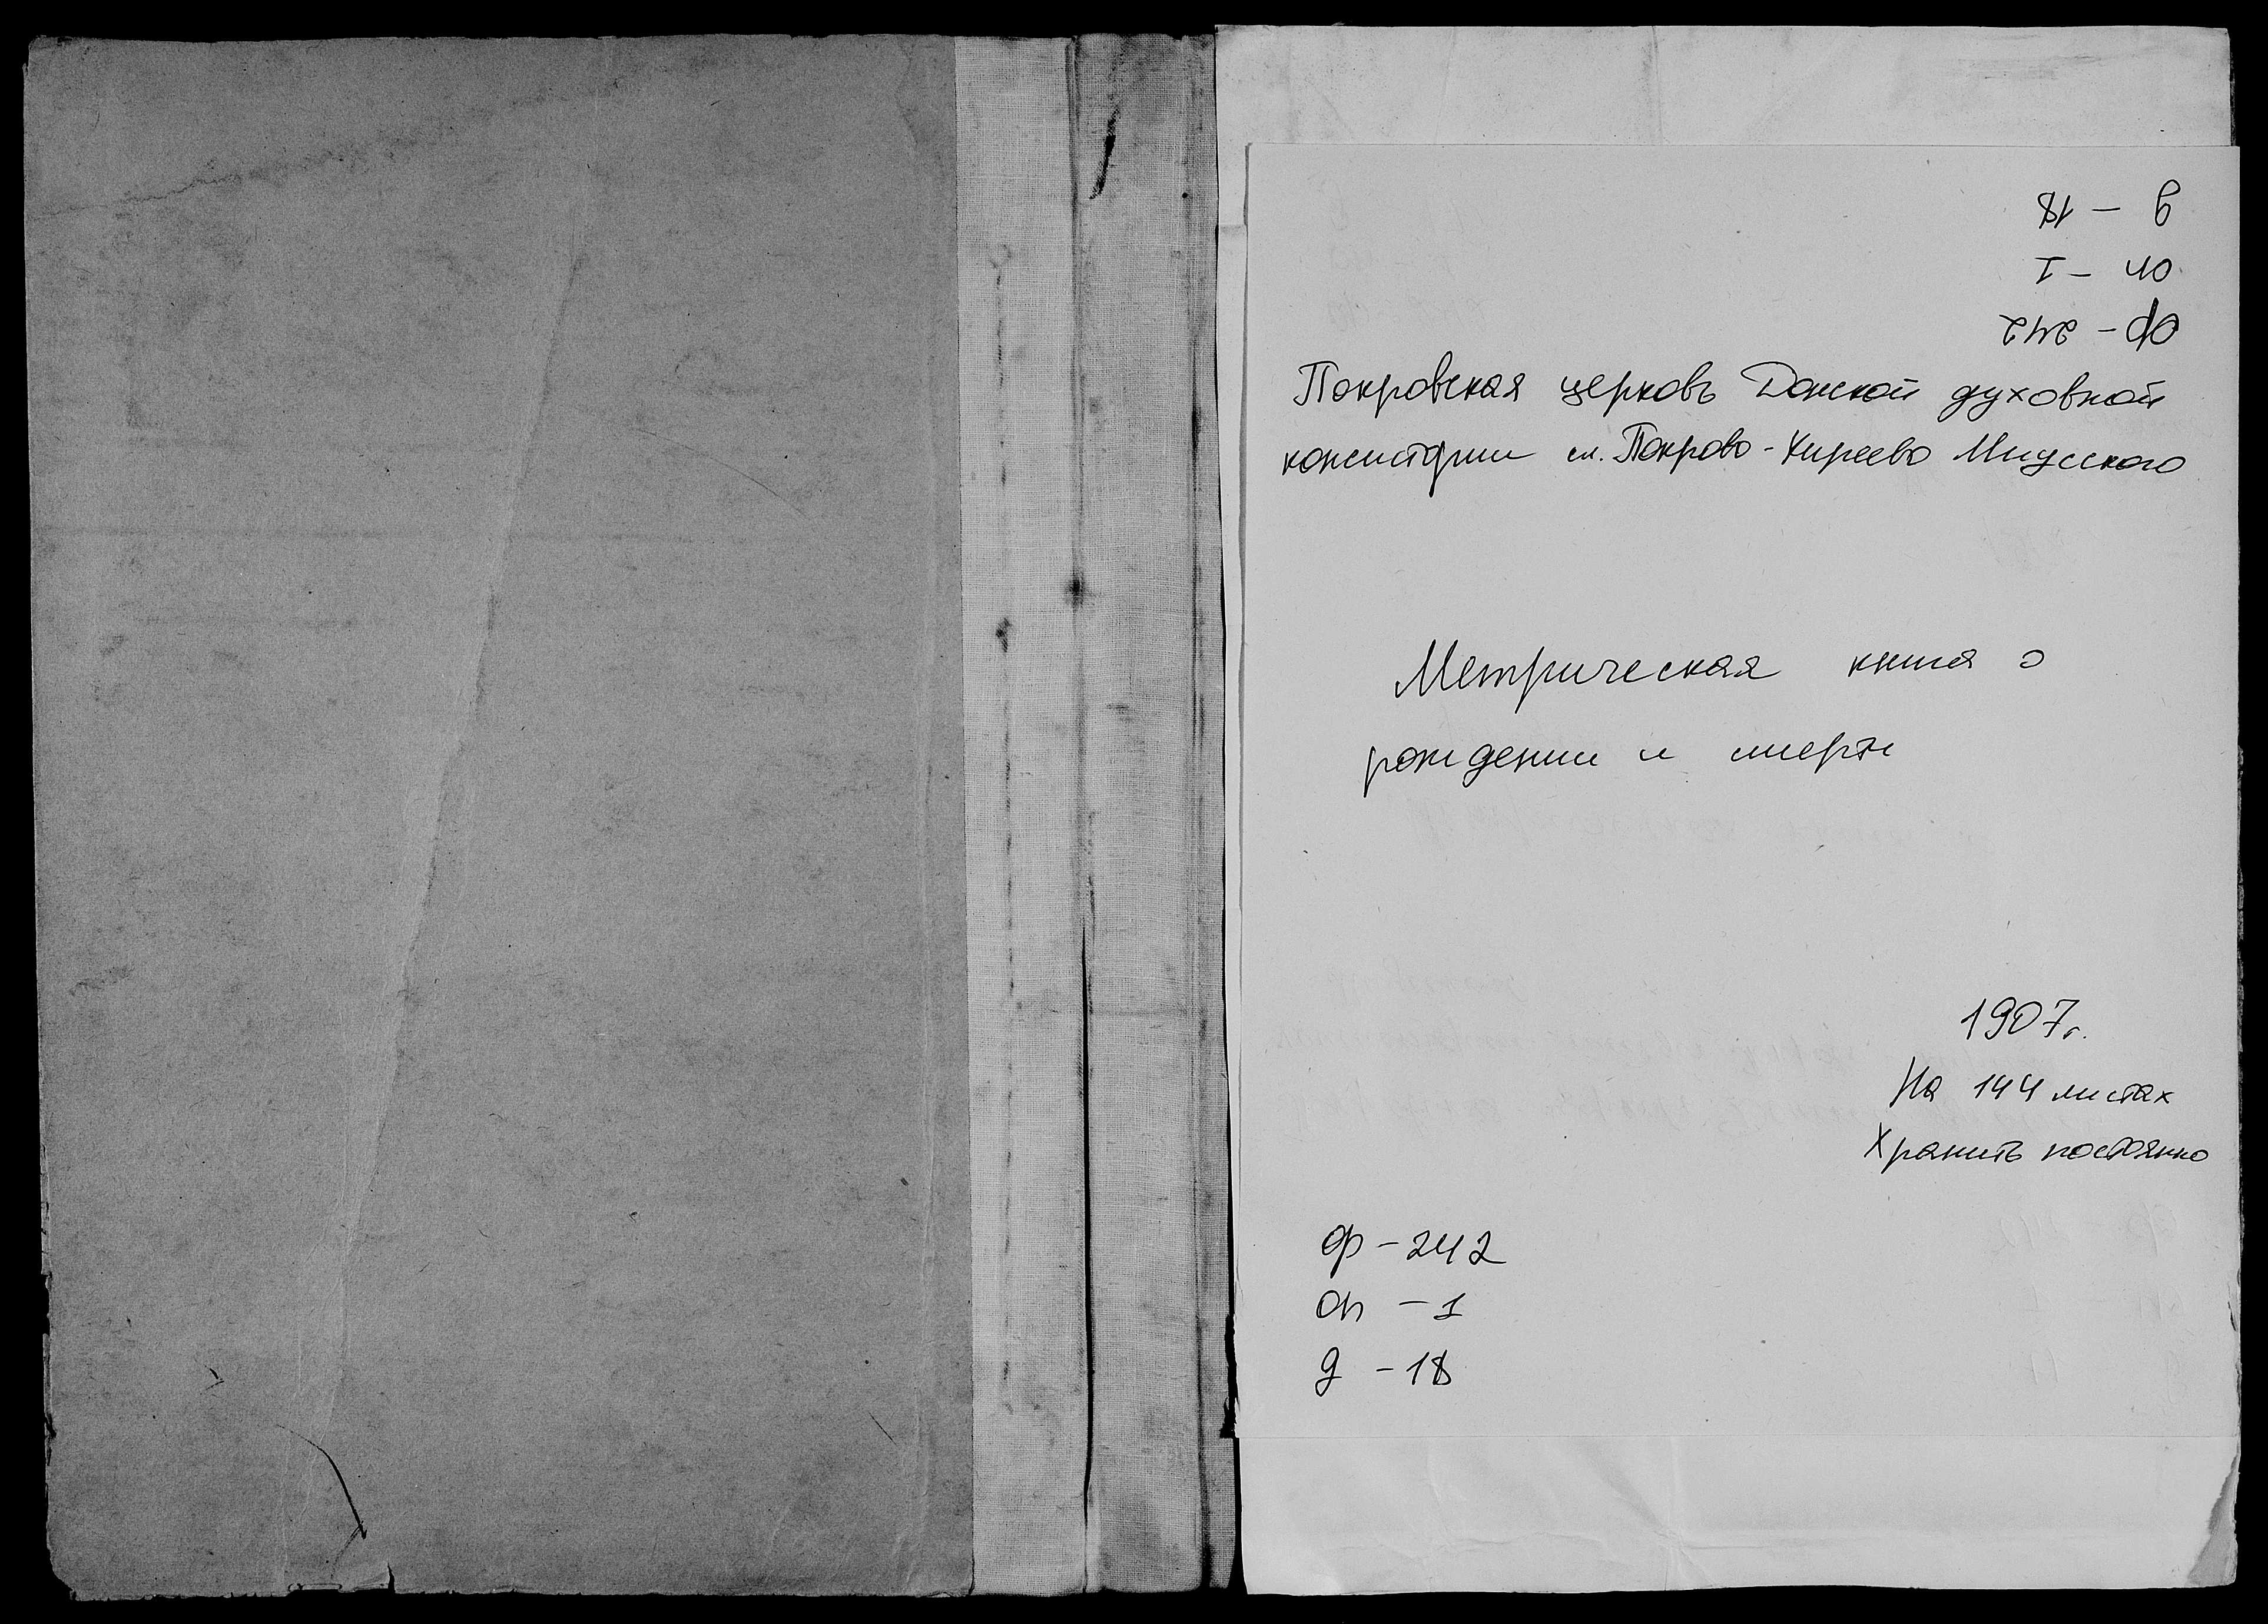 д - 18
оп - 1
ф - 242
Покровская церковь Донской духовной
консистории сл. Покрово-Киреево Миусского
Метрическая книга о
рождении и смерти
1907г.
На 144 листах
Хранить постоянно
ф - 242
оп - 1
д - 18